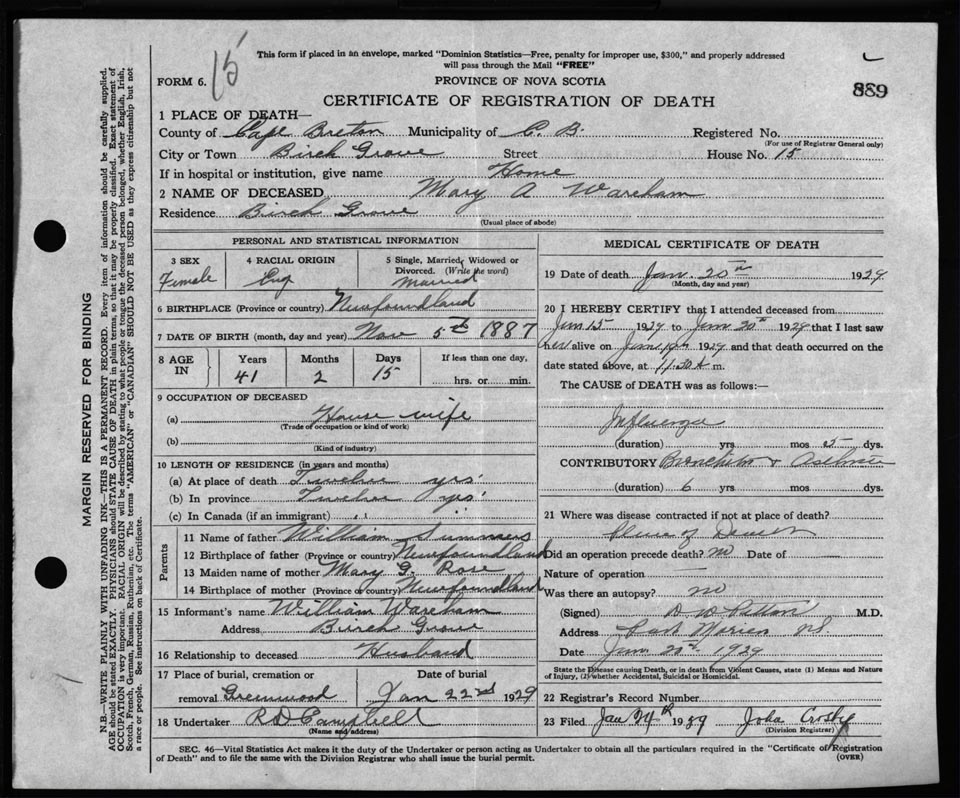 15
This form if placed in an envelope, marked "Dominion Statistics—Free, penalty for improper use, $300," and properly addressed
will pass through the Mail "FREE"
FORM 6.
PROVINCE OF NOVA SCOTIA
889
CERTIFICATE OF REGISTRATION OF DEATH
1 PLACE OF DEATH—
County of Cape Breton Municipality of C. B. Registered No.
(For use of Registrar General only)
City or Town Birch Grove Street House No. 15
If in hospital or institution, give name Home
2 NAME OF DECEASED Mary A Wareham
Residence Birch Grove
(Usual place of abode)
PERSONAL AND STATISTICAL INFORMATION
3 SEX
Female
4 RACIAL ORIGIN
Eng
5 Single, Married, Widowed or
Divorced. (Write the word)
Married
6 BIRTHPLACE (Province or country) Newfoundland
7 DATE OF BIRTH (month, day and year) Nov 5th 1887
8 AGE IN
Years Months Days If less than one day,
41 2 15 hrs. or min.
9 OCCUPATION OF DECEASED
(a) House wife
(Trade of occupation or kind of work)
(b)
(Kind of industry)
10 LENGTH OF RESIDENCE (in years and months)
(a) At place of death Twelve yrs.
(b) In province Twelve yrs.
(c) In Canada (if an immigrant) " "
Parents
11 Name of father William Summers
12 Birthplace of father (Province or country) Newfoundland
13 Maiden name of mother Mary G. Rose
14 Birthplace of mother (Province or country) Newfoundland
15 Informant's name William Wareham
Address Birch Grove
16 Relationship to deceased Husband
17 Place of burial, cremation or
removal Greenwood
Date of burial
Jan 22nd 1929
18 Undertaker R D Campbell
(Name and address)
MEDICAL CERTIFICATE OF DEATH
19 Date of death Jan. 20th 1929
(Month, day and year)
20 I HEREBY CERTIFY that I attended deceased from
Jan 15 1929 to Jan 20th 1929 that I last saw
her alive on Jan 19th 1929 and that death occurred on the
date stated above, at 11.30 A m.
The CAUSE of DEATH was as follows:—
Influenza
(duration) yrs mos 5 dys.
CONTRIBUTORY Bronchitis & Asthma
(duration) 6 yrs mos dys.
21 Where was disease contracted if not at place of death?
Place of
Did an operation precede death? no Date of
Nature of operation —
Was there an autopsy? no
(Signed) D W Patton M.D.
Address Port Morien N.S.
Date Jan 20th 1929
State the Disease causing Death, or in death from Violent Causes, state (1) Means and Nature
of Injury, (2) whether Accidental, Suicidal or Homicidal.
22 Registrar's Record Number
23 Filed Jan 24th 1929 John Crosby
(Division Registrar)
SEC. 46—Vital Statistics Act makes it the duty of the Undertaker or person acting as Undertaker to obtain all the particulars required in the "Certificate of Registration
of Death" and to file the same with the Division Registrar who shall issue the burial permit.
(OVER)
MARGIN RESERVED FOR BINDING
N.B.—WRITE PLAINLY WITH UNFADING INK—THIS IS A PERMANENT RECORD. Every item of information should be carefully supplied.
AGE should be stated EXACTLY. PHYSICIANS should STATE CAUSE OF DEATH in plain terms, so that it may be properly classified. Exact statement of
OCCUPATION is very important. RACIAL ORIGIN will be described by stating to what people or tongue the deceased person belonged, whether English, Irish,
Scotch, French, German, Russian, Ruthenian, etc. The terms "AMERICAN" or "CANADIAN" SHOULD NOT BE USED as they express citizenship but not
a race or people. See instructions on back of Certificate.